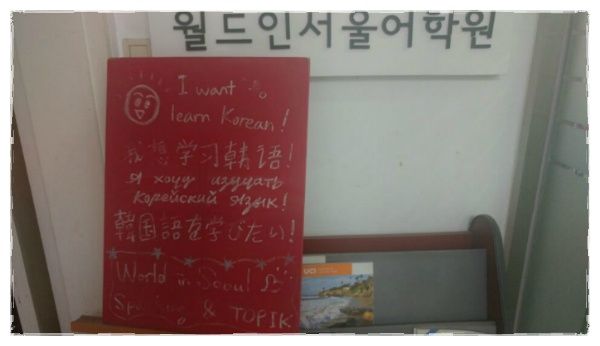 월드인서울어학원
I want to
learn Korean!
我想学习韓语!
Я хочу изучать
корейский язык!
韓国語を学びたい!
World in Seoul
Speaking & TOPIK
UCI